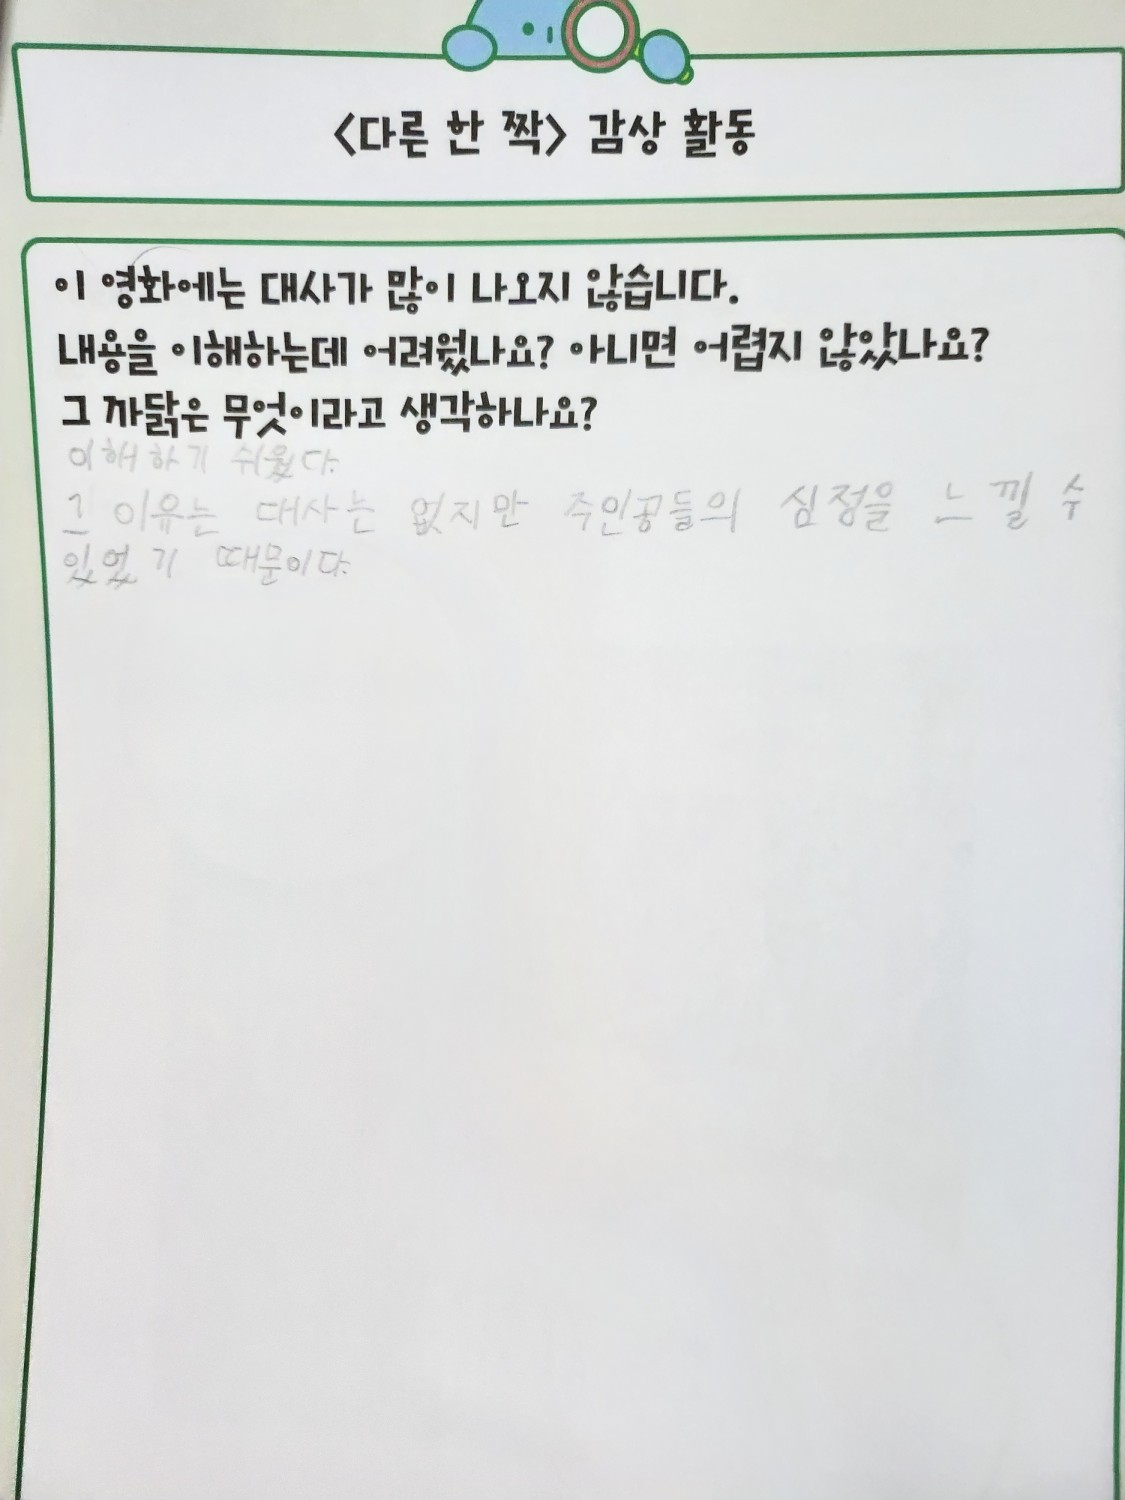 <다른 한 짝> 감상 활동
이 영화에는 대사가 많이 나오지 않습니다.
내용을 이해하는데 어려웠나요? 아니면 어렵지 않았나요?
그 까닭은 무엇이라고 생각하나요?
이해하기 쉬웠다.
그 이유는 대사는 없지만 주인공들의 심정을 느낄 수
있었기 때문이다.